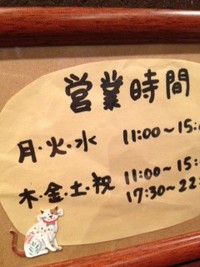 営業時間
月・火・水 11:00～15:
木・金・土・祝 11:00～15:
17:30～22: